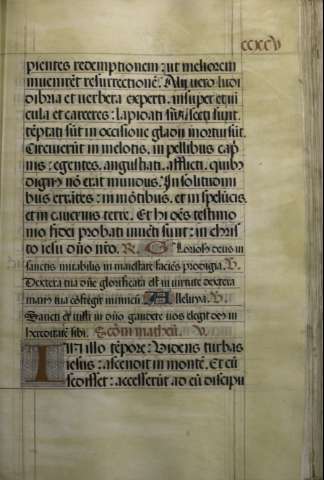 ccxcv
pientes redemptionem: ut meliorem
inuenirēt resurrectionē. Alij uero ludi
dibria et uerbera experti. insuper et ui
cula et carceres: lapidati sūt/ secti sunt.
tēptati sūt in occisione gladii mortui sūt.
Circuierūt in melotis. in pellibus cap
nis: egentes. angustiati. afflicti. quibꝰ
dignꝰ nō erat mundus. In solitudini
bus errātes: in mōtibus. et in speluncis.
et in cauernis terre. Et hi oēs testimo
nio fidei probati inuēti sunt: in chris
to iesu dño nr̄o. R. Gloriosꝰ deus in
sanctis mirabilis in maiestate faciēs prodigia. V.
Dextera tua dñe glorificata est in uirtute dextera
manꝰ tua cōfregit inimicū. Alleluya. V.
Sancti et iusti in dño gaudete uos elegit deꝰ in
hereditatē sibi. Secūdū matheū. V.
IN illo tēpore: Videns turbas
iesus: ascendit in montē. Et cū
sedisset: accesserūt ad eū discipu